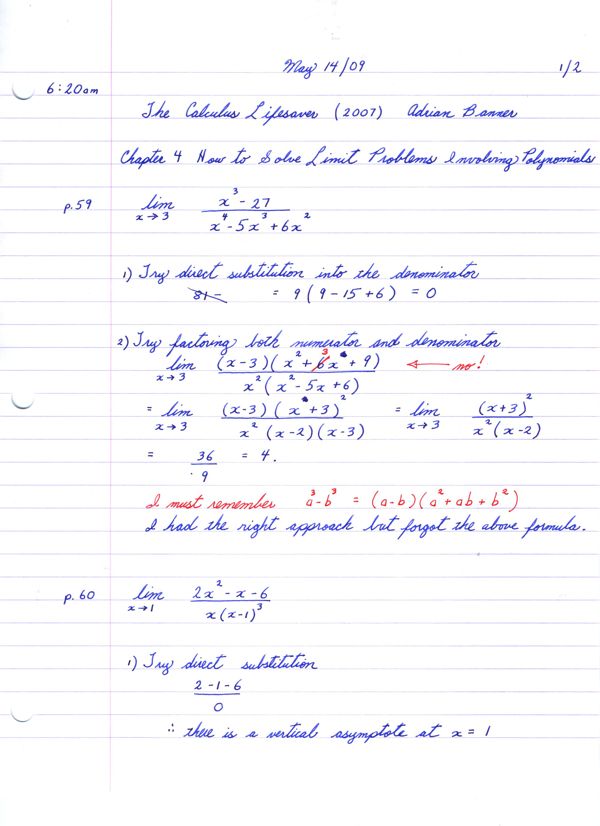 May 14/09 1/2
6:20am
The Calculus Lifesaver (2007) Adrian Banner
Chapter 4 How to Solve Limit Problems Involving Polynomials
p.59 lim x→3 (x³ - 27)/(x⁴ - 5x³ + 6x²)
1) Try direct substitution into the denominator
81- = 9(9-15+6) = 0
2) Try factoring both numerator and denominator
lim x→3 (x-3)(x² + 6 3 x + 9)/(x²(x² - 5x + 6)) ← no!
= lim x→3 (x-3)(x+3)²/(x²(x-2)(x-3)) = lim x→3 (x+3)²/(x²(x-2))
= 36/9 = 4.
I must remember a³-b³ = (a-b)(a²+ab+b²)
I had the right approach but forgot the above formula.
p.60 lim x→1 (2x² - x - 6)/(x(x-1)³)
1) Try direct substitution
(2-1-6)/0
∴ there is a vertical asymptote at x = 1